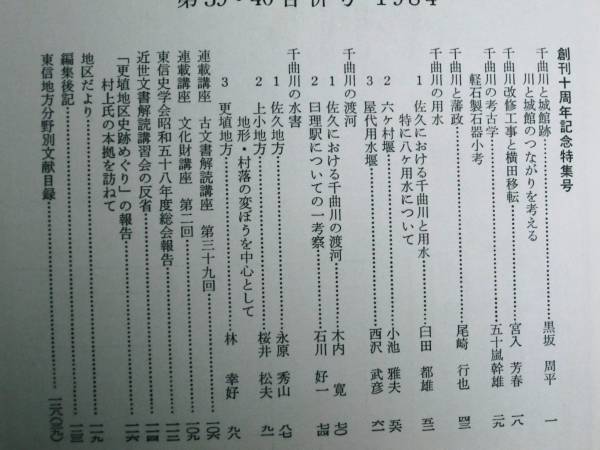 第39・40合併号 1984
創刊十周年記念特集号
千曲川と城館跡
川と城館のつながりを考える……黒坂 周平 一
千曲川改修工事と横田移転……宮入 芳春 一八
千曲川の考古学
軽石製石器小考……五十嵐幹雄 二九
千曲川と藩政……尾崎 行也 四三
千曲川の用水
1 佐久における千曲川と用水
特に八ヶ用水について……臼田 都雄 五二
2 六ヶ村堰……小池 雅夫 五六
3 屋代用水堰……西沢 武彦 六一
千曲川の渡河
1 佐久における千曲川の渡河……木内 寛 七〇
2 曰理駅についての一考察……石川 好一 七四
千曲川の水害
1 佐久地方……永原 秀山 八七
2 上小地方……桜井 松夫 九一
地形・村落の変ぼうを中心として
3 更埴地方……林 幸好 九八
連載講座 古文書解読講座 第三十九回……一〇六
連載講座 文化財講座 第二回……一〇九
東信史学会昭和五十八年度総会報告……一一二
近世文書解読講習会の反省……一一四
「更埴地区史跡めぐり」の報告
村上氏の本拠を訪ねて……一一六
地区だより……一一九
編集後記……一二三
東信地方分野別文献目録……一二八(〇九)